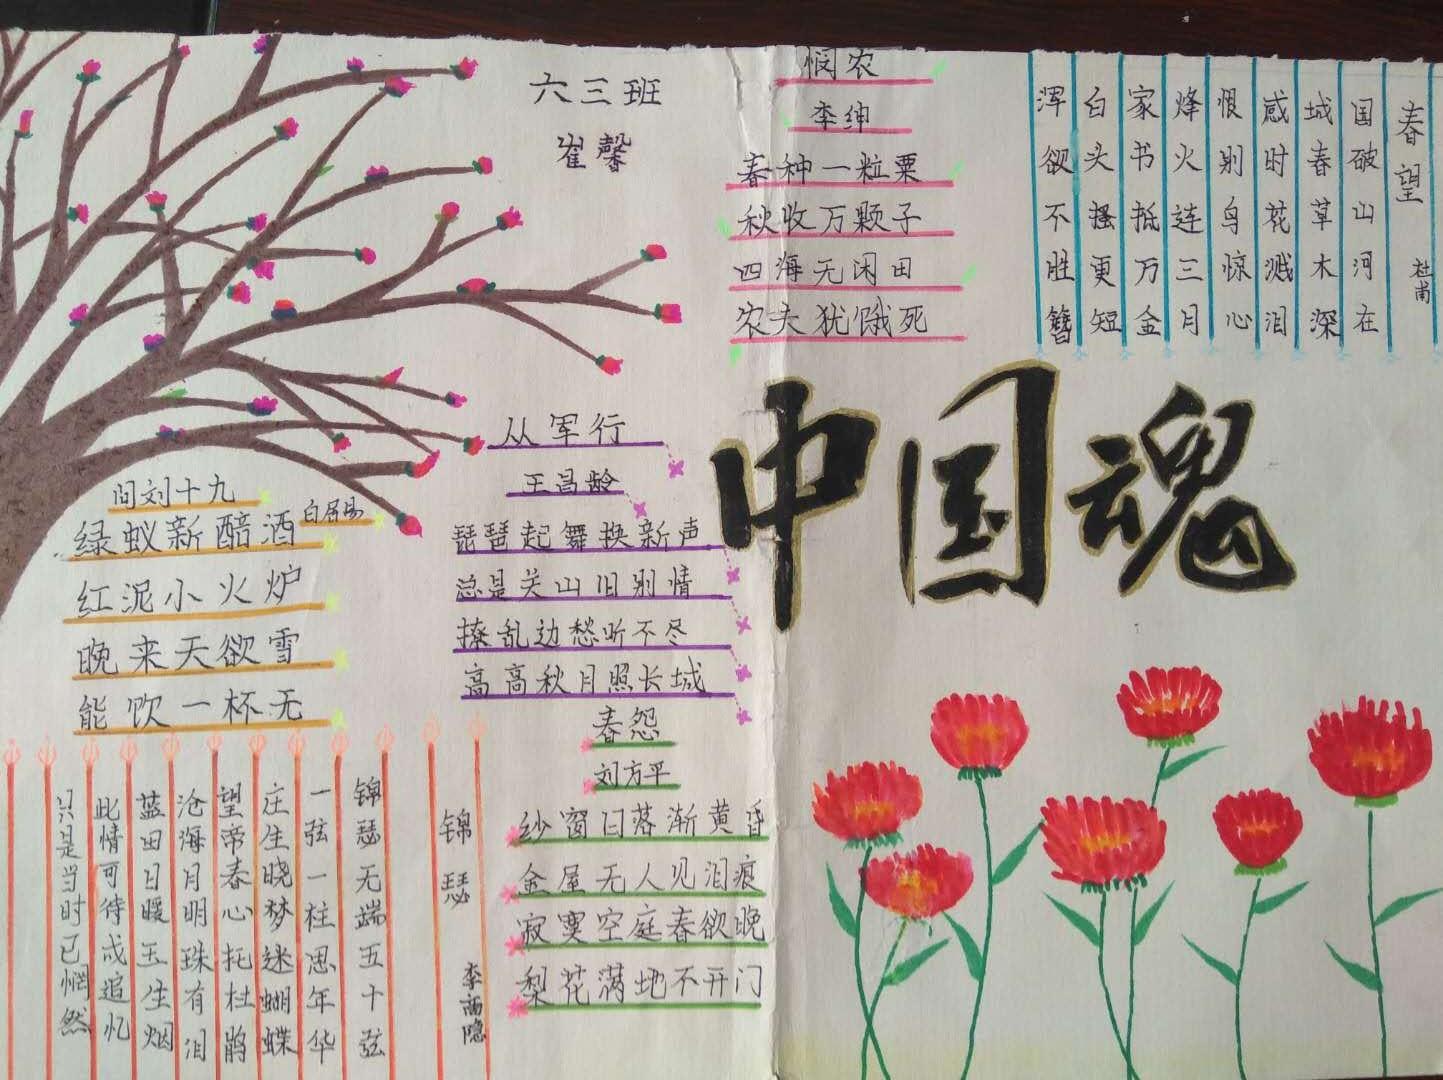 六三班
崔馨
悯农
李绅
春种一粒粟
秋收万颗子
四海无闲田
农夫犹饿死
春望
杜甫
国破山河在
城春草木深
感时花溅泪
恨别鸟惊心
烽火连三月
家书抵万金
白头搔更短
浑欲不胜簪
中国魂
从军行
王昌龄
琵琶起舞换新声
总是关山旧别情
撩乱边愁听不尽
高高秋月照长城
问刘十九
白居易
绿蚁新醅酒
红泥小火炉
晚来天欲雪
能饮一杯无
春怨
刘方平
纱窗日落渐黄昏
金屋无人见泪痕
寂寞空庭春欲晚
梨花满地不开门
锦瑟
李商隐
锦瑟无端五十弦
一弦一柱思年华
庄生晓梦迷蝴蝶
望帝春心托杜鹃
沧海月明珠有泪
蓝田日暖玉生烟
此情可待成追忆
只是当时已惘然